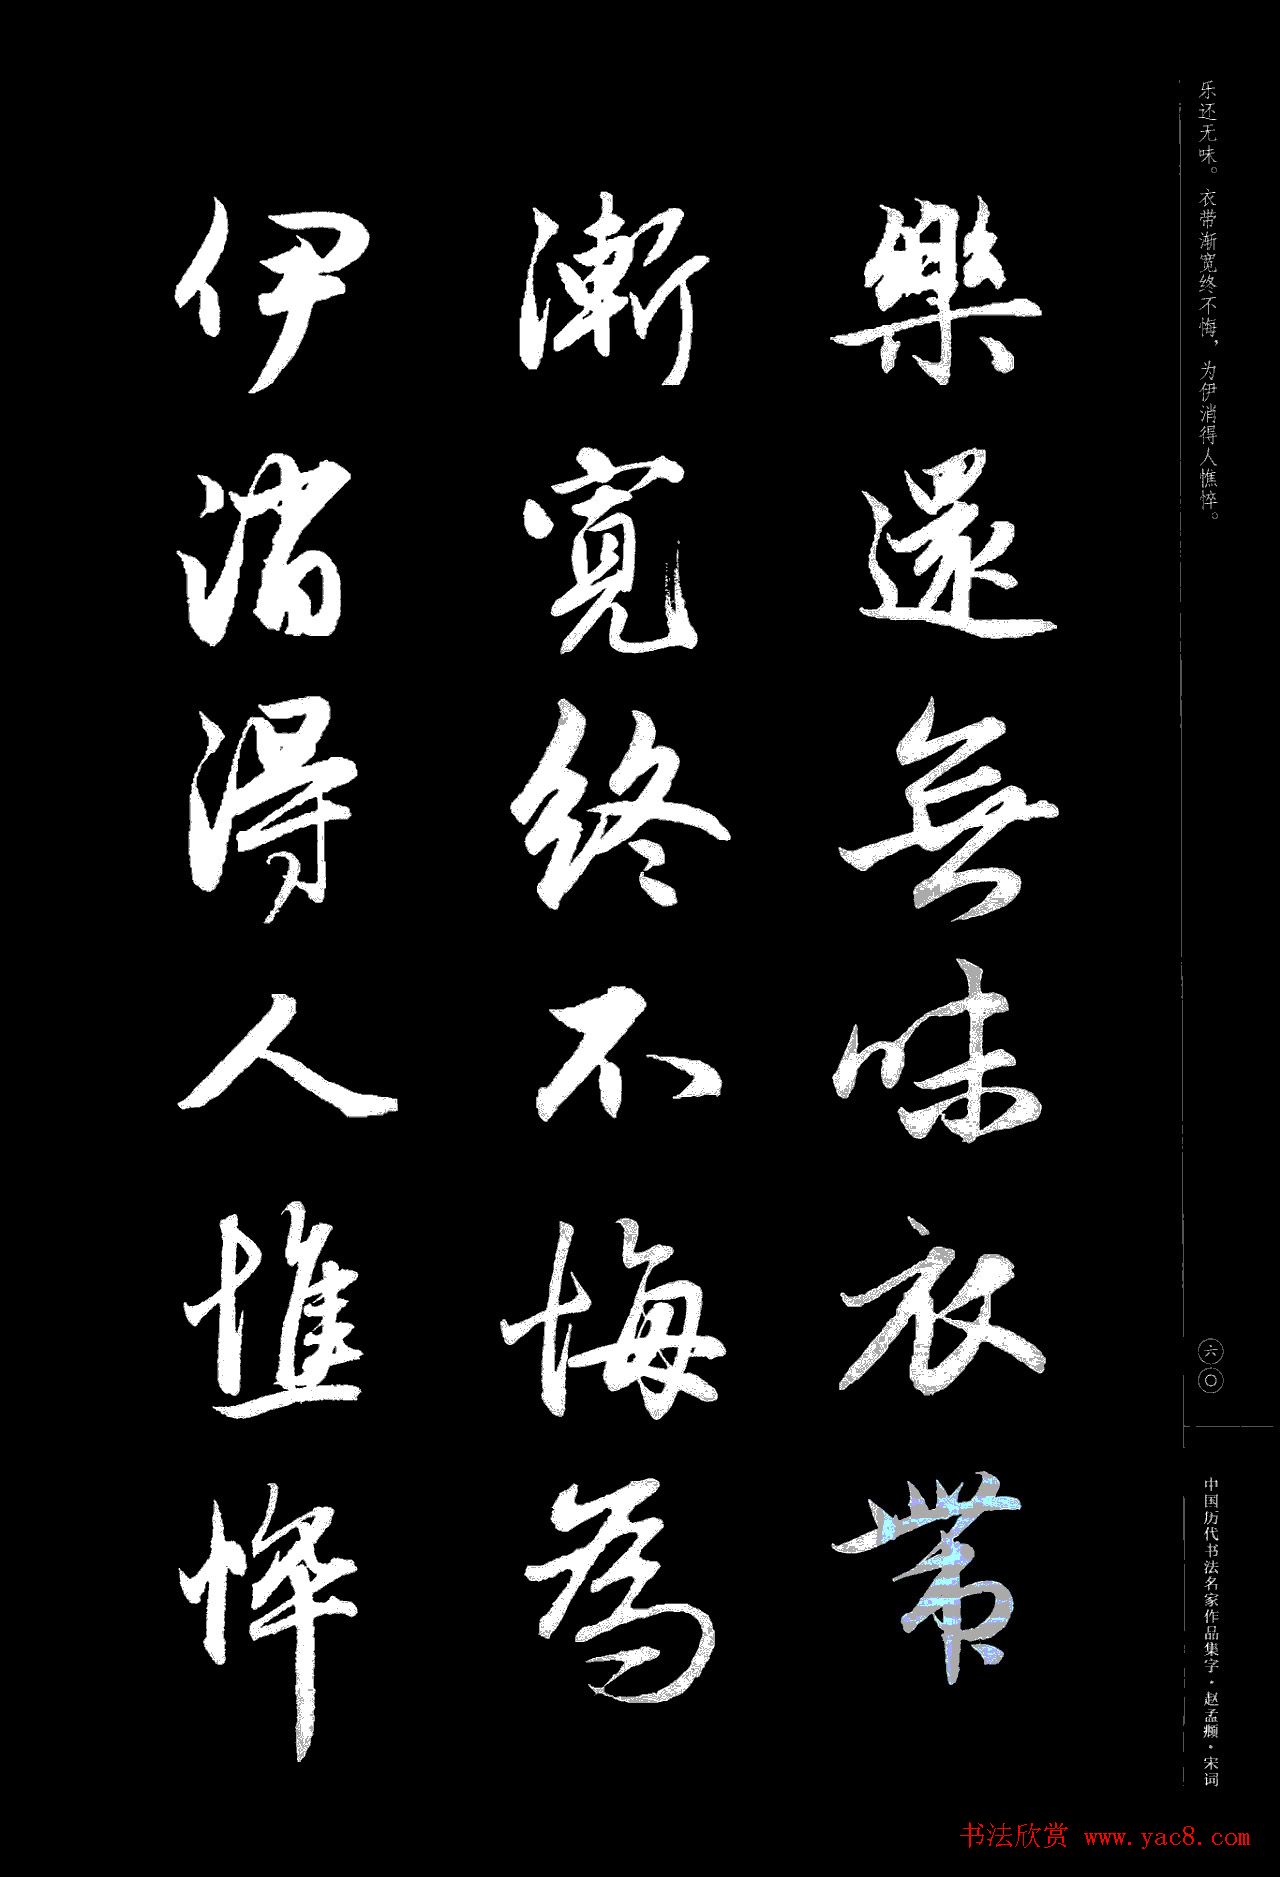 乐还无味。衣带渐宽终不悔，为伊消得人憔悴。
樂還無味衣帶
漸寬終不悔為
伊消得人憔悴
六〇
中国历代书法名家作品集字·赵孟頫·宋词
书法欣赏 www.yac8.com